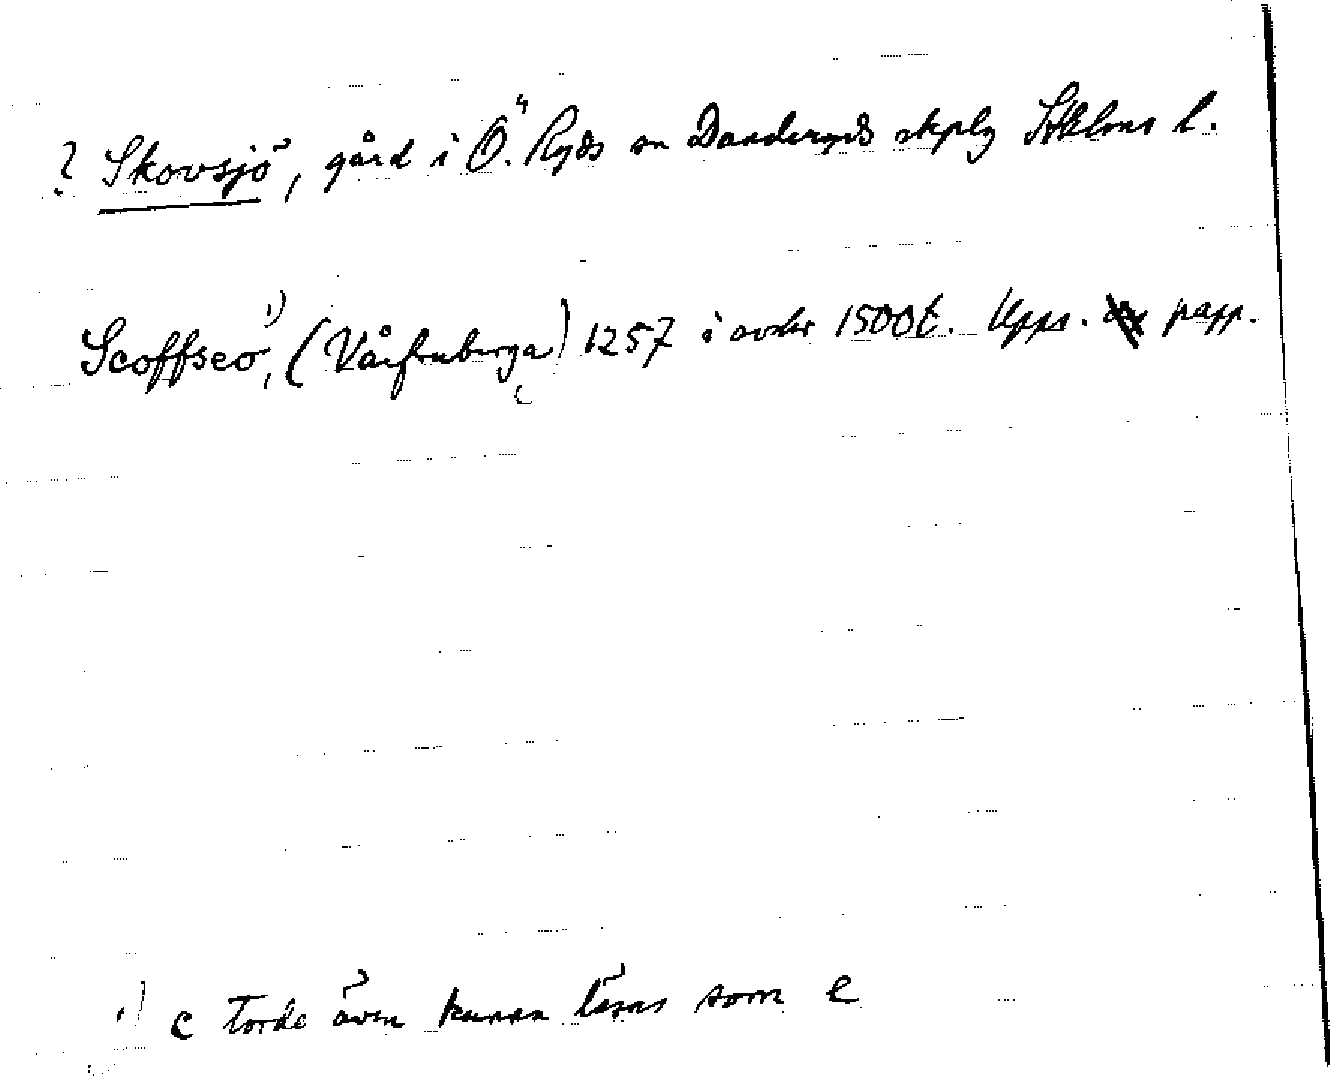 ? Skovsjö, gård i Ö. Ryds sn Danderyds skplg Sthlms l.
Scoffseo, ¹) (Vårfruberga) 1257 i avskr 1500t. Upps. papp.
¹) c torde även kunna läsas som e